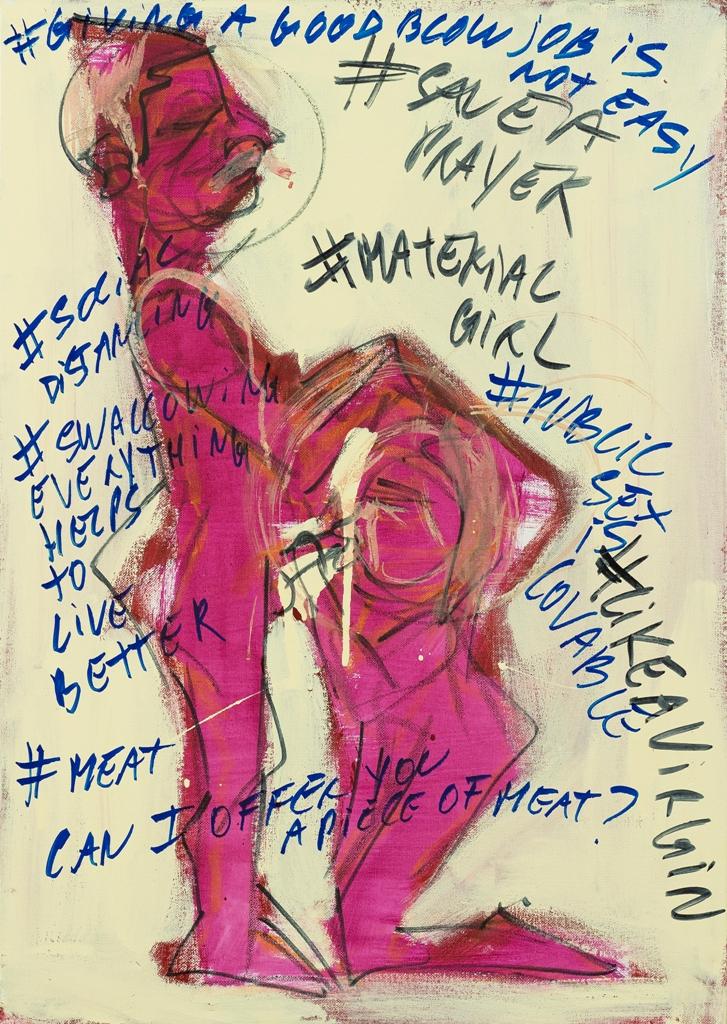 #GIVING A GOOD BLOW JOB IS
NOT EASY
#SAVE A
PRAYER
#MATERIAL
GIRL
#SOCIAL
DISTANCING
#SWALLOWING
EVERYTHING
HELPS
TO
LIVE
BETTER
#PUBLIC
SEX
IS
LOVABLE
#LIKE A VIRGIN
#MEAT
CAN I OFFER YOU
A PIECE OF MEAT?